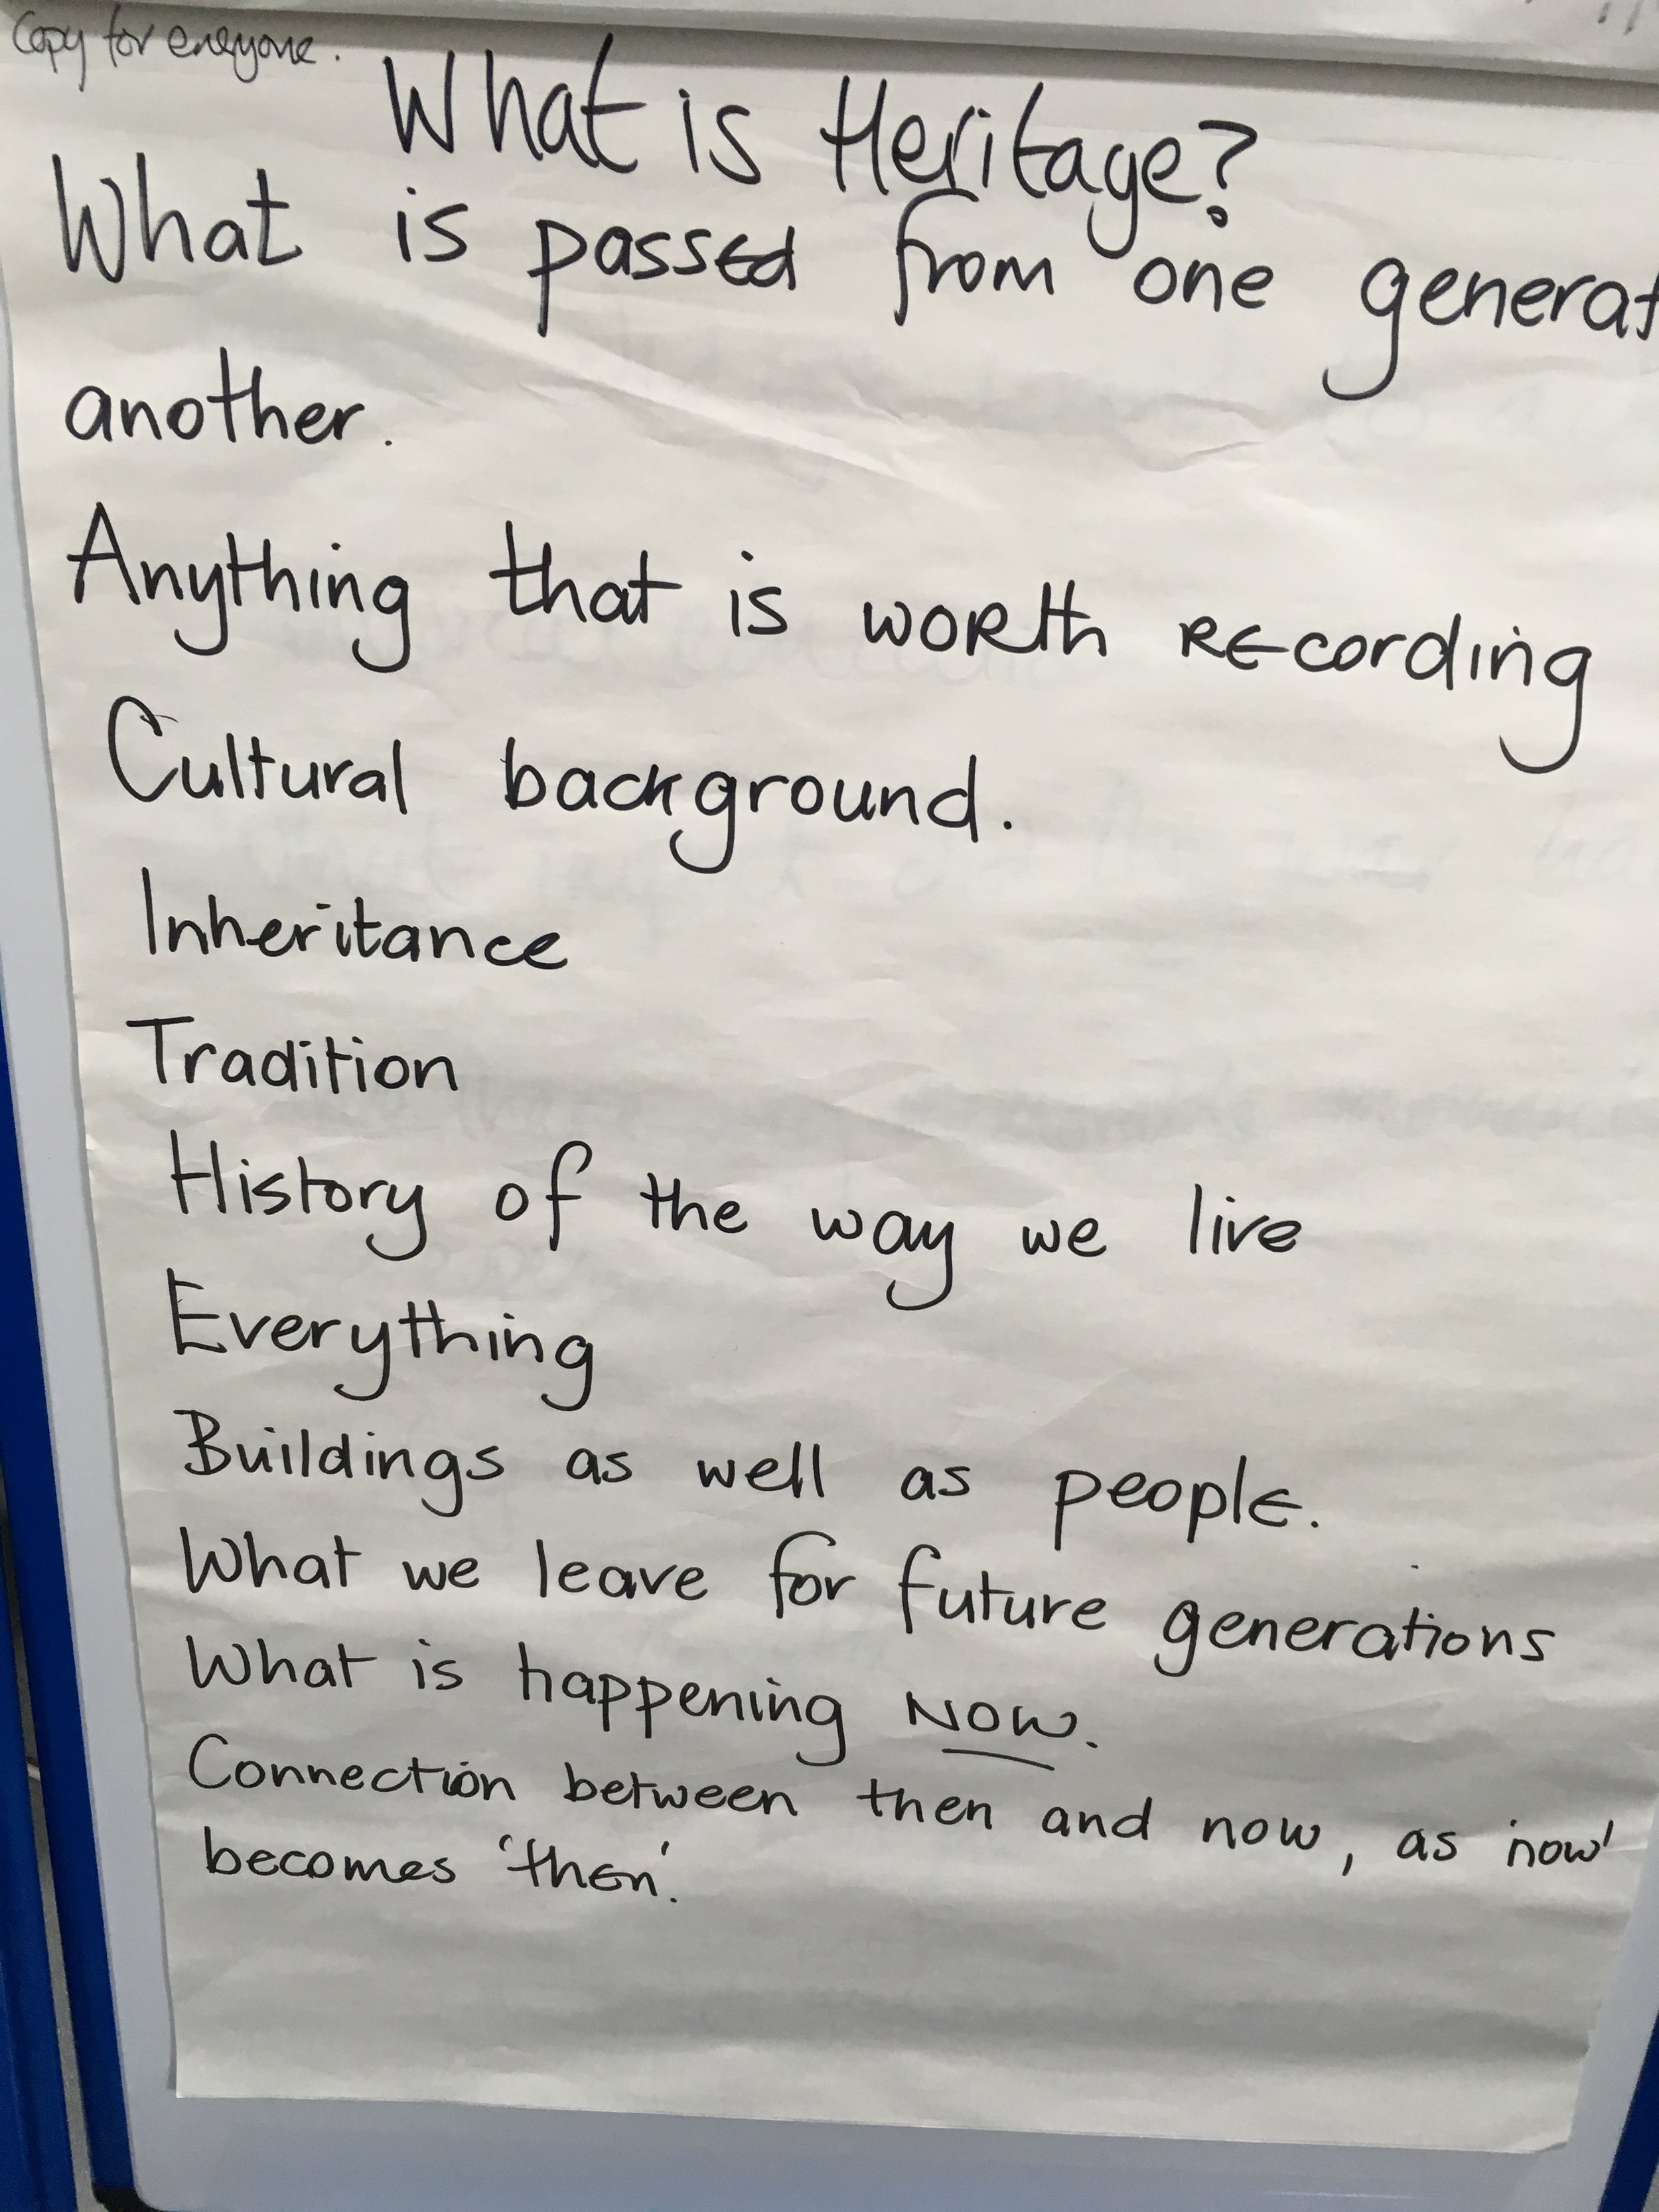 Copy for everyone.
What is Heritage?
What is passed from one generat
another.
Anything that is worth recording
Cultural background.
Inheritance
Tradition
History of the way we live
Everything
Buildings as well as people.
What we leave for future generations
What is happening NOW.
Connection between then and now, as 'now'
becomes 'then'.